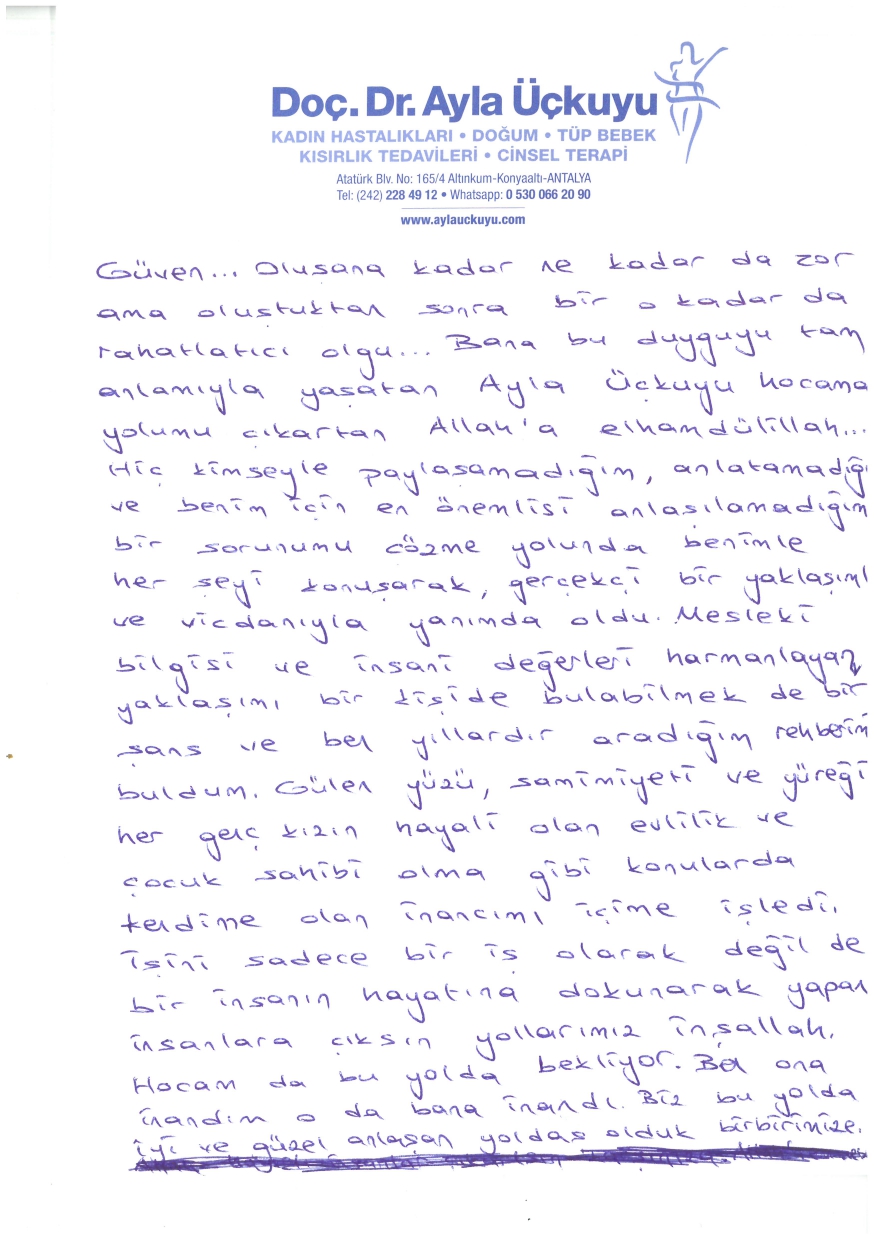 Doç. Dr. Ayla Üçkuyu
KADIN HASTALIKLARI • DOĞUM • TÜP BEBEK
KISIRLIK TEDAVİLERİ • CİNSEL TERAPİ
Atatürk Blv. No: 165/4 Altınkum-Konyaaltı-ANTALYA
Tel: (242) 228 49 12 • Whatsapp: 0 530 066 20 90
www.aylauckuyu.com
Güven... Olusana kadar ne kadar da zor
ama olustuktan sonra bir o kadar da
rahatlatıcı olgu... Bana bu duyguyu tam
anlamıyla yaşatan Ayla Üçkuyu hocama
yolumu çıkartan Allah'a elhamdülillah...
Hiç kimseyle paylasamadığım, anlatamadığı
ve benim için en önemlisi anlasılamadığım
bir sorunumu çözme yolunda benimle
her seyi konuşarak, gerçekçi bir yaklaşım
ve vicdanıyla yanımda oldu. Mesleki
bilgisi ve insani değerleri harmanlayan
yaklaşımı bir kişide bulabilmek de bir
şans ve ben yıllardır aradığım rehberim
buldum. Gülen yüzü, samimiyeti ve yüreği
her genç kızın hayali olan evlilik ve
çocuk sahibi olma gibi konularda
kendime olan inancımı içime işledi.
İşini sadece bir is olarak değil de
bir insanın hayatına dokunarak yapan
insanlara çıksın yollarımız inşallah.
Hocam da bu yolda bekliyor. Ben ona
inandım o da bana inandı. Biz bu yolda
iyi ve güzel anlaşan yoldas olduk birbirimize.